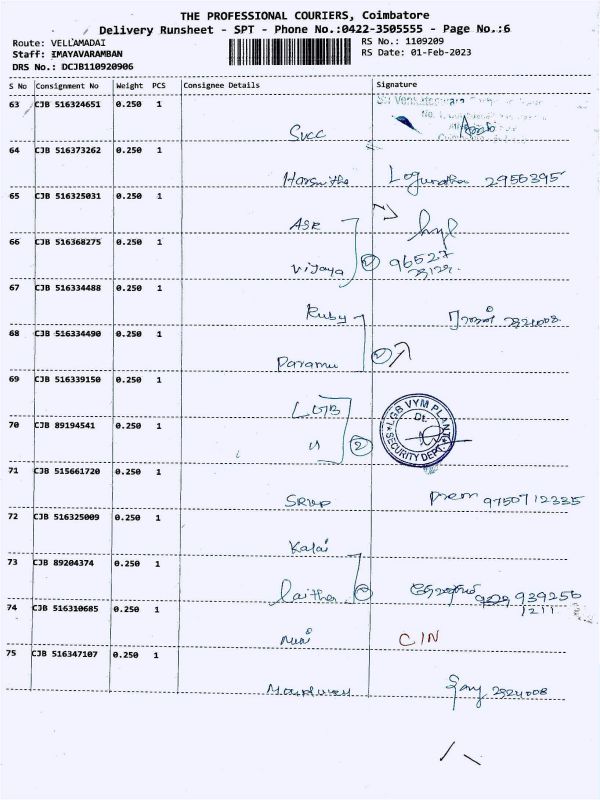 THE PROFESSIONAL COURIERS, Coimbatore
Delivery Runsheet - SPT - Phone No.:0422-3505555 - Page No.:6
Route: VELLAMADAI
RS No.: 1109209
Staff: IMAYAVARAMBAN
RS Date: 01-Feb-2023
DRS No.: DCJB110920906
S No Consignment No Weight PCS Consignee Details Signature
63 CJB 516324651 0.250 1
SVCC
64 CJB 516373262 0.250 1
Harsnitha 2956395
65 CJB 516325031 0.250 1
ASR
66 CJB 516368275 0.250 1
Vijaya 2 96527
67 CJB 516334488 0.250 1
Ruby
68 CJB 516334490 0.250 1
Paramu
69 CJB 516339150 0.250 1
LGB
L.G.B VYM PLANT
Dt.
SECURITY DEPT.
70 CJB 89194541 0.250 1
2
71 CJB 515661720 0.250 1
Prem 9750712335
72 CJB 516325009 0.250 1
Kalai
73 CJB 89204374 0.250 1
Laitha 939256
1211
74 CJB 516310685 0.250 1
CIN
75 CJB 516347107 0.250 1